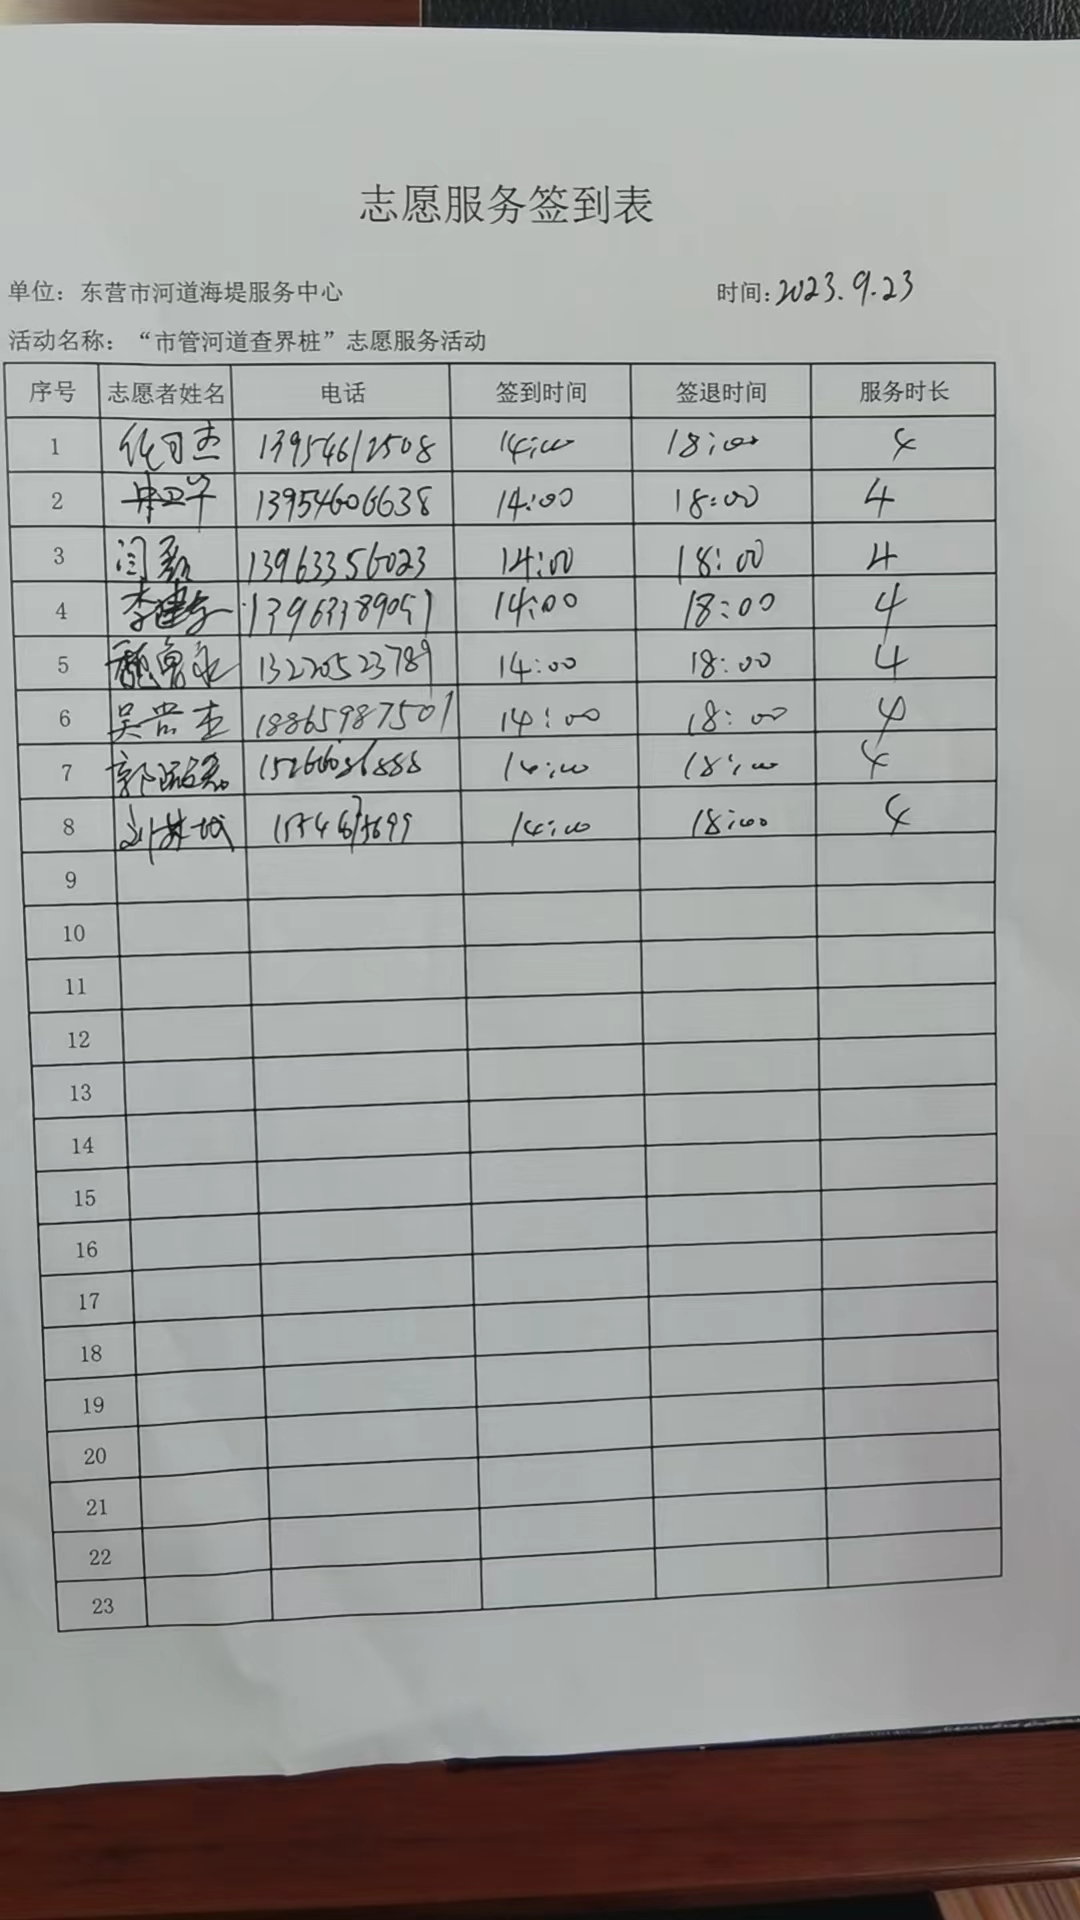 志愿服务签到表
单位：东营市河道海堤服务中心 时间：2023.9.23
活动名称：“市管河道查界桩”志愿服务活动
序号 志愿者姓名 电话 签到时间 签退时间 服务时长
1 13954612508 14:00 18:00 4
2 13954606638 14:00 18:00 4
3 闫磊 13963356023 14:00 18:00 4
4 14:00 18:00 4
5 13220523789 14:00 18:00 4
6 吴世杰 18865987501 14:00 18:00 4
7 14:00 18:00 4
8 14:00 18:00 4
9
10
11
12
13
14
15
16
17
18
19
20
21
22
23